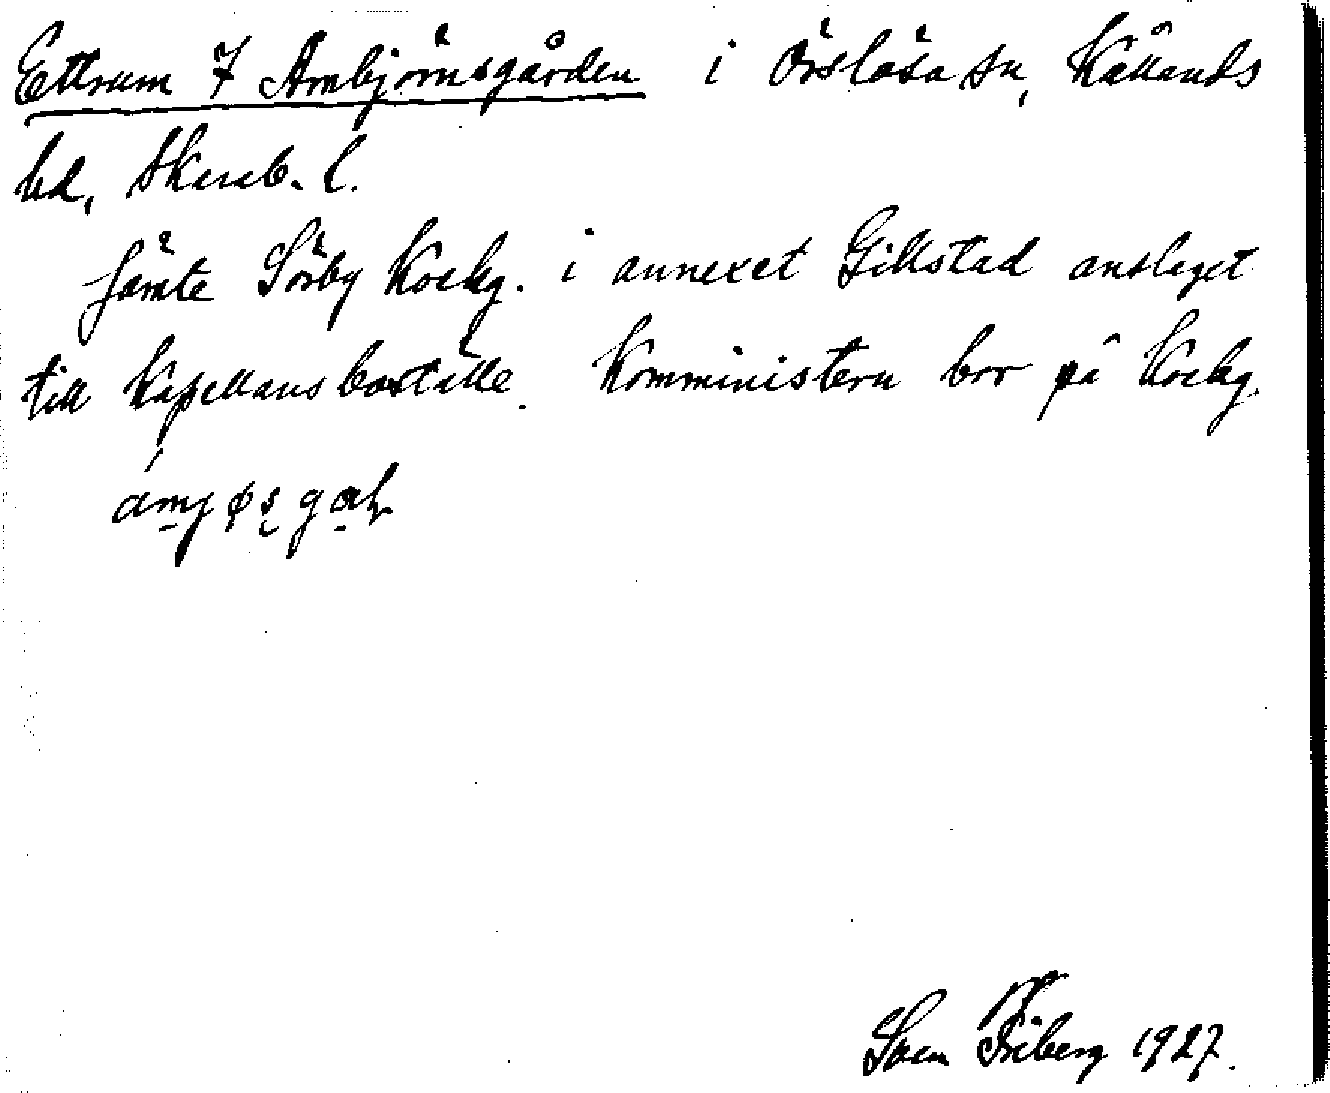 Ettrum 7 Arnbjörnsgården i Örslösa sn, Kållands
hd, Skarab. l.
Jämte Sörby Kockg. i annexet Gillstad anslaget
till Kapellansboställe. Komministern bor på Kockg.
Sven Friberg 1927.